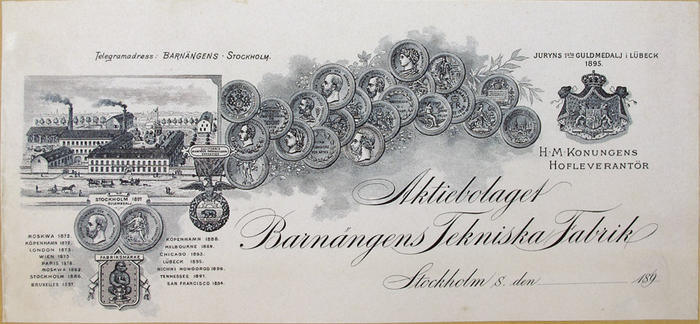 Telegramadress: BARNÄNGENS · STOCKHOLM.
JURYNS 1STA GULDMEDALJ i LÜBECK
1895.
H·M·KONUNGENS
HOFLEVERANTÖR
STOCKHOLM 1897
GULDMEDALJ
Aktiebolaget
Barnängens Tekniska Fabrik
Stockholm S. den 189
MOSKWA 1872.
KÖPENHAMN 1872.
LONDON 1873.
WIEN 1873
PARIS 1878.
MOSKWA 1882.
STOCKHOLM 1886.
BRUXELLES 1897.
FABRIKSMÄRKE
KÖPENHAMN 1888.
MELBOURNE 1889.
CHICAGO 1893.
LÜBECK 1895.
NICHNI NOWGOROD 1896.
TENNESSEE 1897.
SAN FRANCISCO 1894.